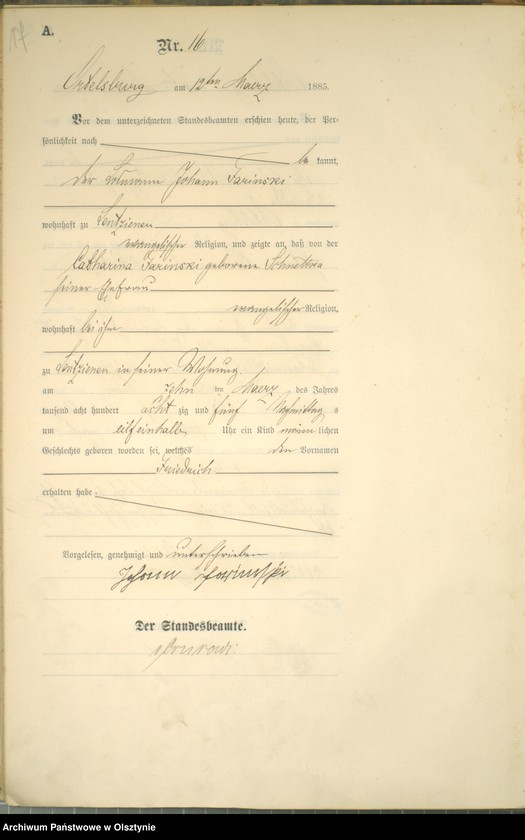 17
A.
Nr. 16
Ortelsburg am 12ten Maerz 1885.
Vor dem unterzeichneten Standesbeamten erschien heute, der Per-
sönlichkeit nach
be kannt,
der Losmann Johann Farinski
wohnhaft zu Lentzienen
evangelischer Religion, und zeigte an, daß von der
Catharina Farinski geborene
seiner Ehefrau
evangelischer Religion,
wohnhaft bei ihm
zu Lentzienen in seiner Wohnung
am zehn ten Maerz des Jahres
tausend acht hundert acht zig und fünf Nachmittag s
um eilfeinhalb Uhr ein Kind männ lichen
Geschlechts geboren worden sei, welches den Vornamen
Friedrich
erhalten habe.
Vorgelesen, genehmigt und unterschrieben
Johann Farinski
Der Standesbeamte.
Archiwum Państwowe w Olsztynie